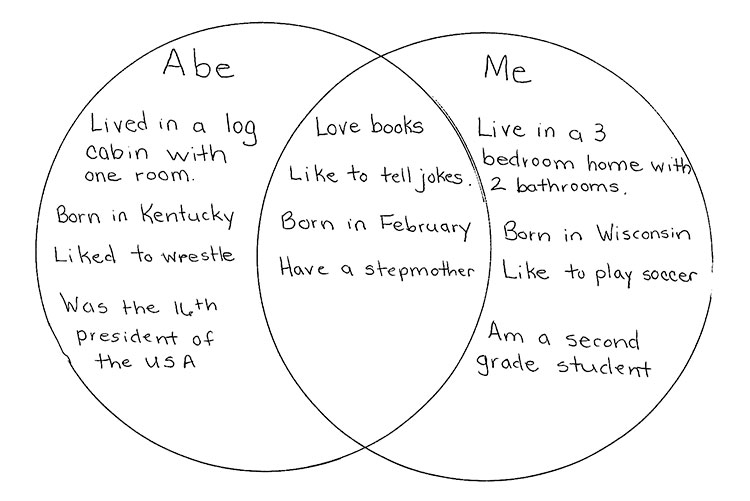 Abe
Lived in a log
cabin with
one room.
Born in Kentucky
Liked to wrestle
Was the 16th
president of
the USA
Love books
Like to tell jokes.
Born in February
Have a stepmother
Me
Live in a 3
bedroom home with
2 bathrooms.
Born in Wisconsin
Like to play soccer
Am a second
grade student